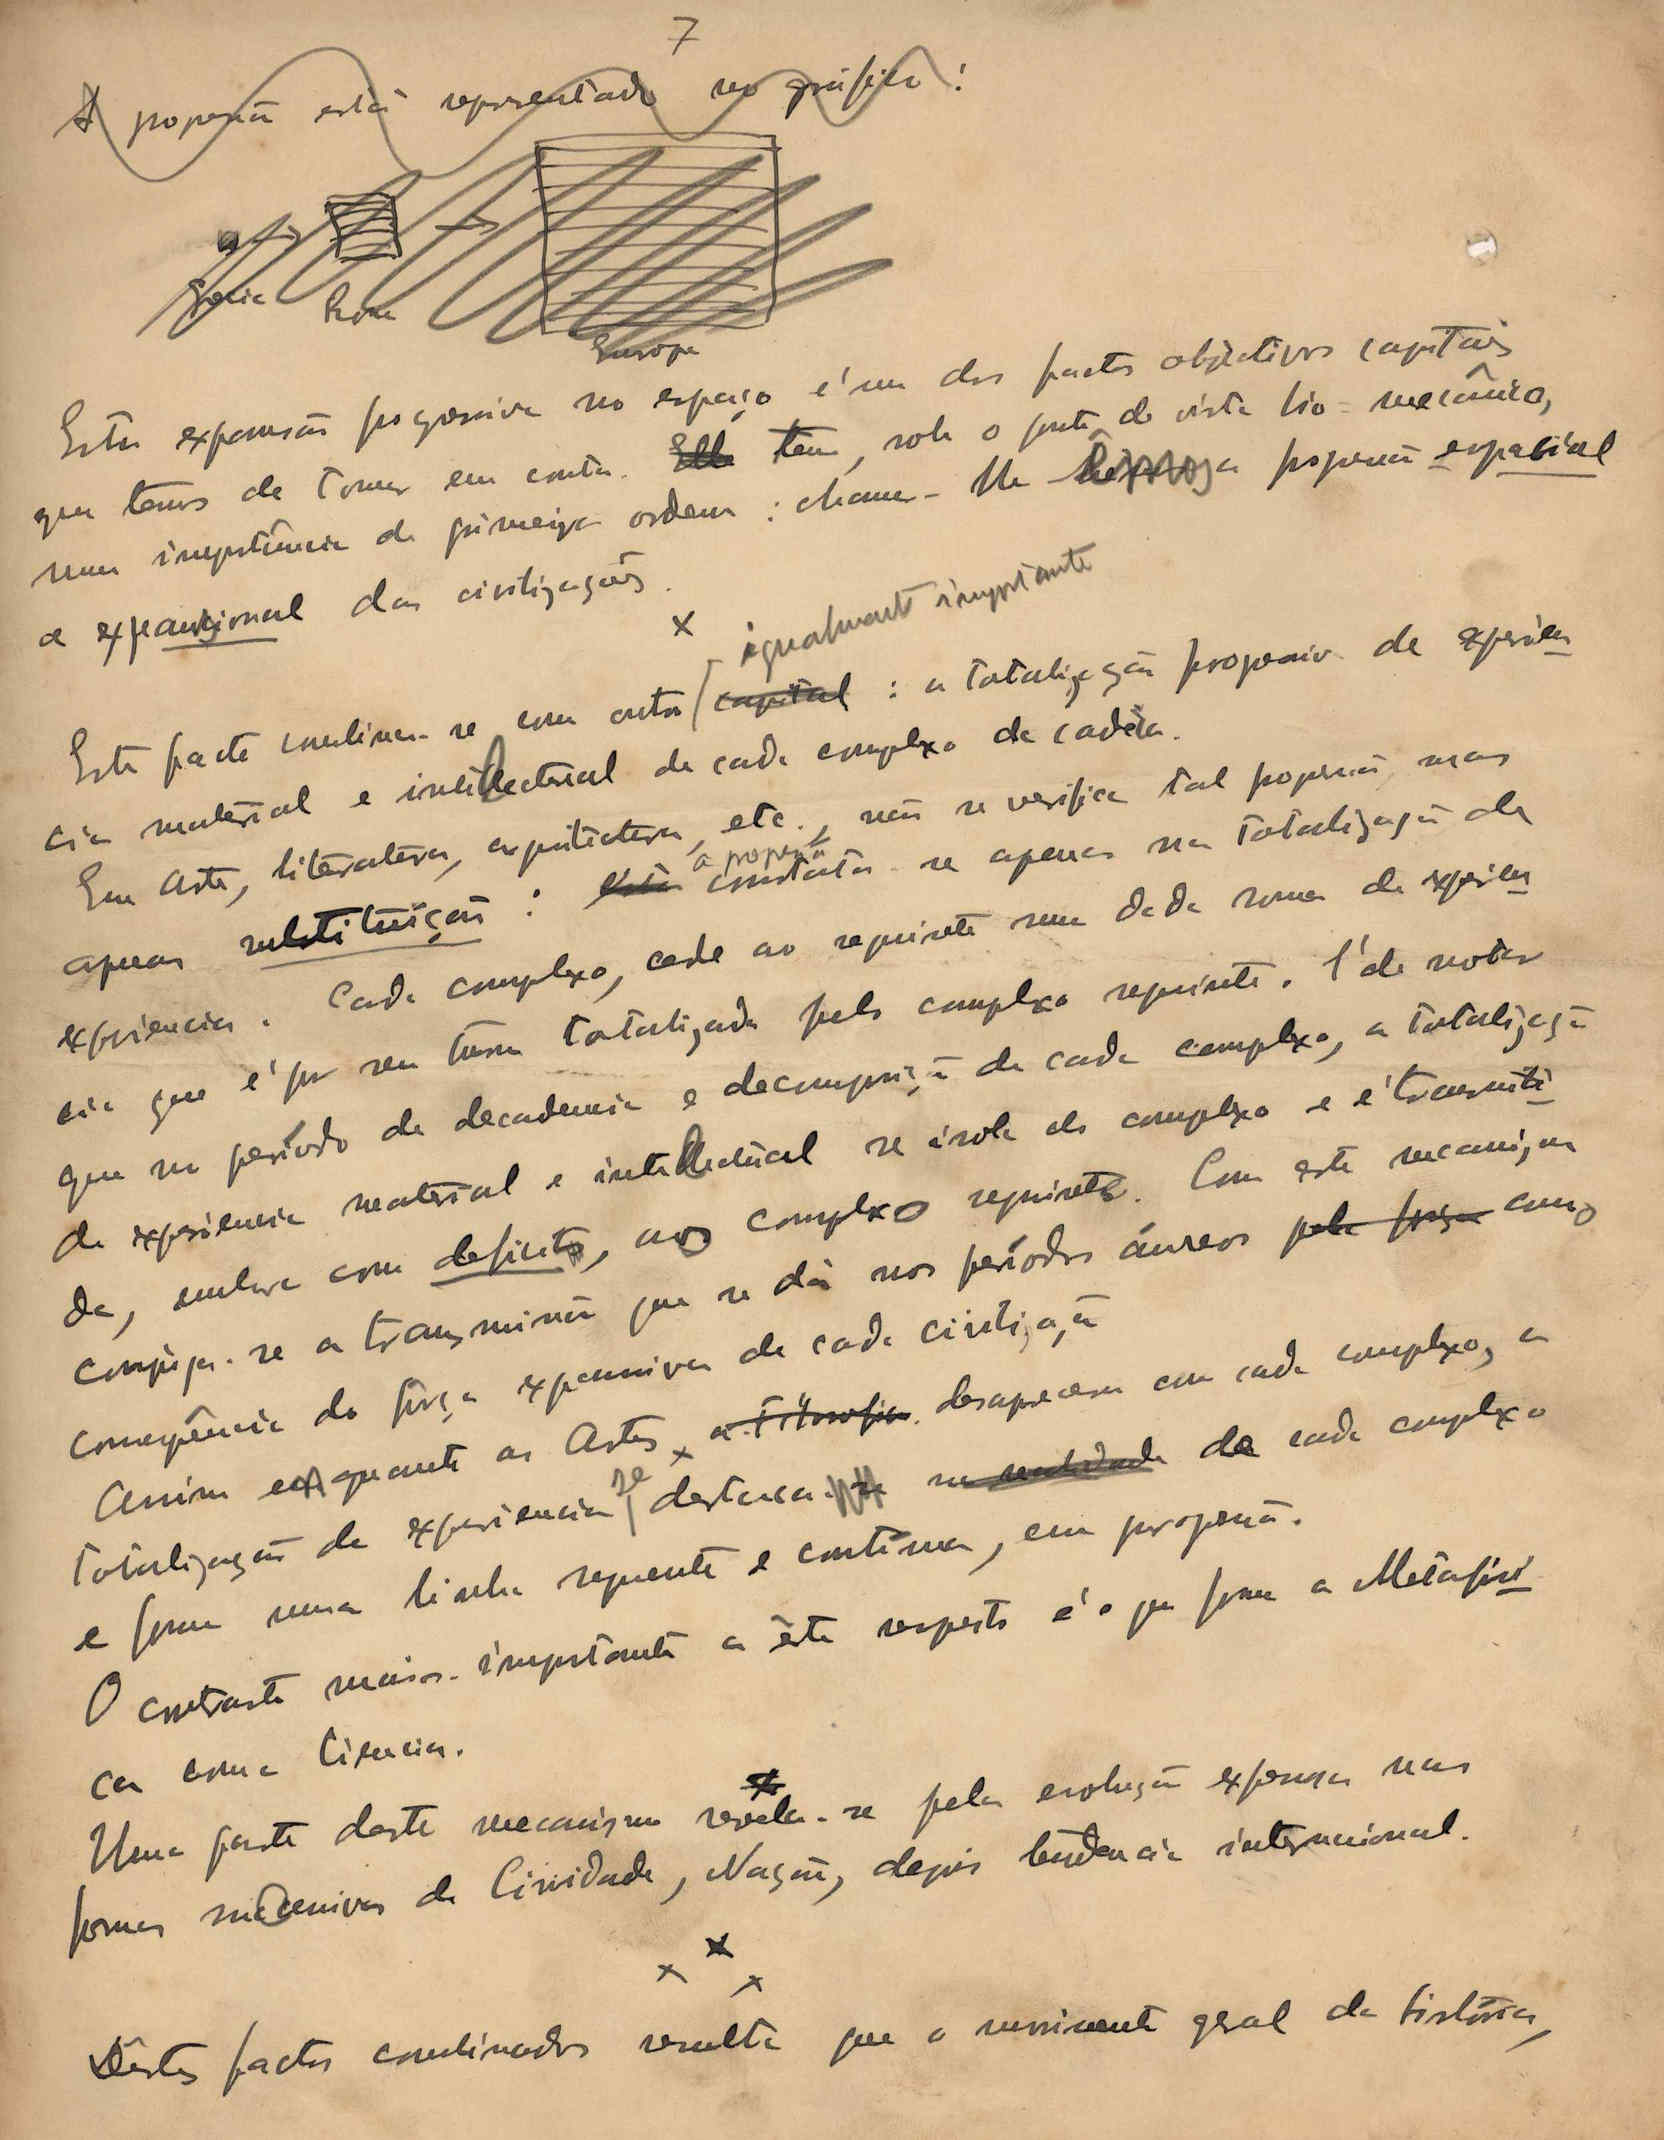 7
A progressão está representada no gráfico:
Grecia Roma
Europa
Esta expansão progressiva no espaço é um dos factos objectivos capitais
que temos de tomar em conta. Ella tem, sob o ponto de vista bio-mecânico,
uma importância de primeira ordem: chama-lhe emos a progressão espacial
e expansional das civilizações.
x
igualmente importante
Este facto combina-se com outro capital: a totalização progressiva de experien
cia material e intellectual de cada complexo de cadeia.
Em Arte, literatura, arquitectura, etc., não se verifica tal progressão, mas
a progressão
apenas substituição: esta constata-se apenas na totalização da
experiencia. Cada complexo, cede ao seguinte uma dada soma de experien
cia que é por seu turno totalizada pelo complexo seguinte. É de notar
que no período de decadencia e decomposição de cada complexo, a totalização
de experiencia material e intellectual se isola do complexo e é transmiti
da, embora com deficits, aos complexos seguintes. Com este mecanismo
conjuga-se a transmissão que se dá nos períodos áureos pela força como
consequência da força expansiva de cada civilização
Assim enquanto as Artes, a Filosofia desaparecem com cada complexo, a
totalização da experiencia se destaca-se na realidade de cada complexo
e forma uma linha seguente e contínua, em progressão.
O contraste mais importante a êste respeito é o que forma a Metafísi
ca com a Ciencia.
Uma parte deste mecanismo revela-se pela evolução expansa nas
formas sucessivas de Cividade, Nação, depois tendencia internacional.
x x x
Dêstes factos combinados resulta que o movimento geral da história,